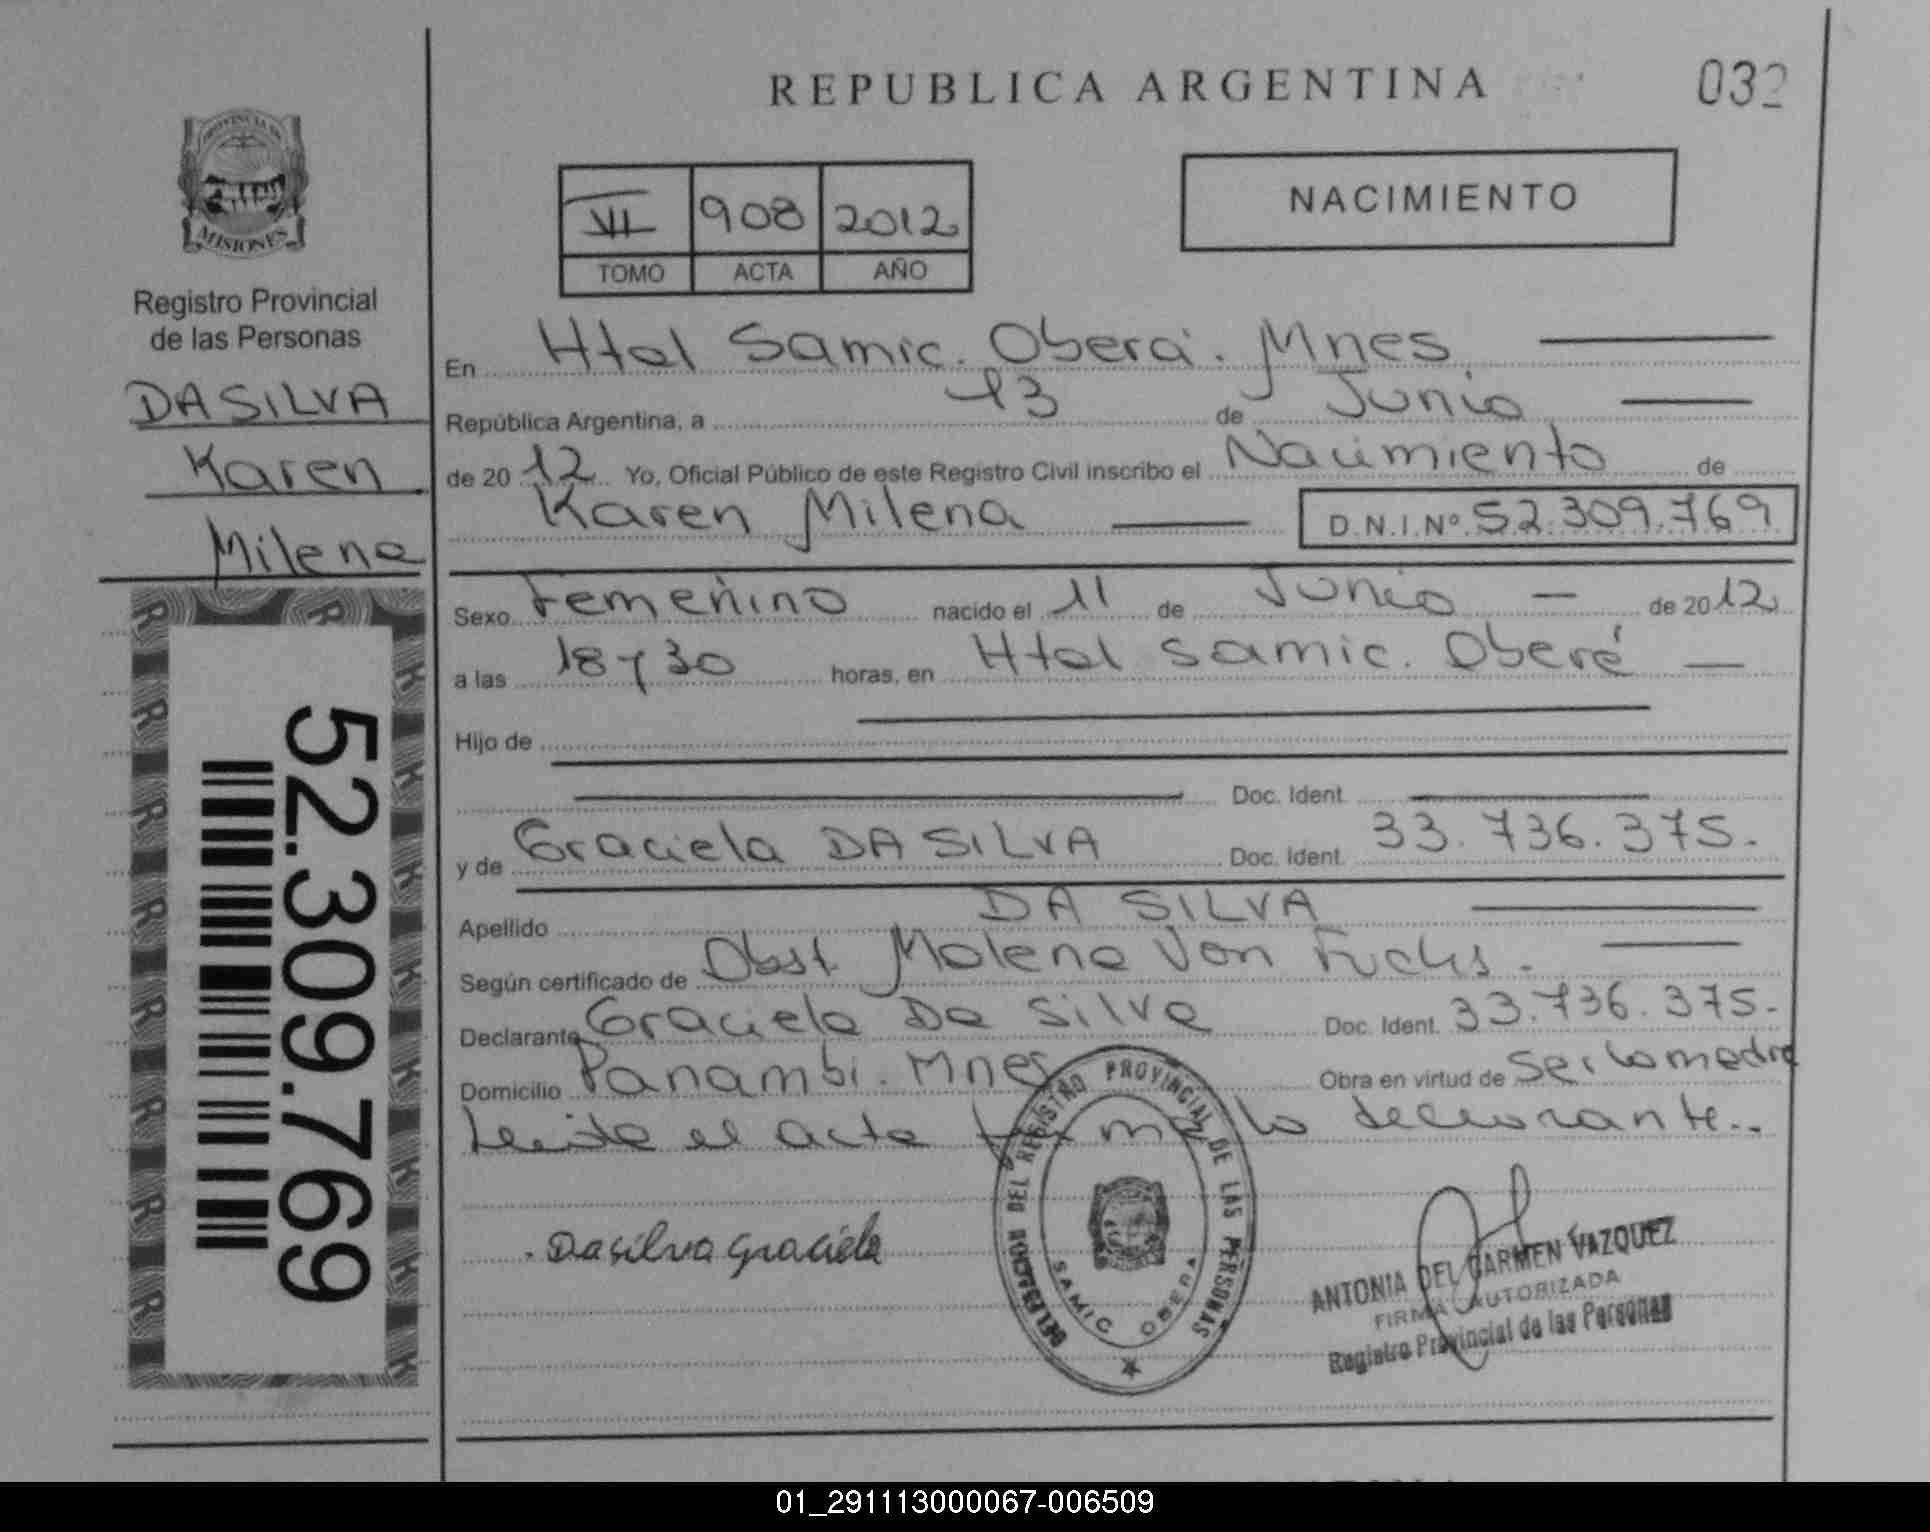 REPUBLICA ARGENTINA
032
PROVINCIA DE
MISIONES
Registro Provincial
de las Personas
DA SILVA
Karen
Milena
52.309.769
VI 908 2012
TOMO ACTA AÑO
NACIMIENTO
En Htal Samic. Oberá. Mnes
República Argentina, a 13 de Junio
de 20 12 Yo, Oficial Público de este Registro Civil inscribo el Nacimiento de
Karen Milena D.N.I.Nº 52.309.769
Sexo Femenino nacido el 11 de Junio de 20 12
a las 18 y 30 horas, en Htal Samic. Oberá
Hijo de
Doc. Ident.
y de Graciela DA SILVA Doc. Ident. 33.736.375.
Apellido DA SILVA
Según certificado de Obst. Malena Von Fuchs.
Declarante Graciela Da Silva Doc. Ident. 33.736.375.
Domicilio Panambí. Mnes Obra en virtud de ser la madre
Leída el acta firma la declarante..
Dasilva Graciela
DELEGACION DEL REGISTRO PROVINCIAL DE LAS PERSONAS
SAMIC OBERA
ANTONIA DEL CARMEN VAZQUEZ
FIRMA AUTORIZADA
Registro Provincial de las Personas
01_291113000067-006509